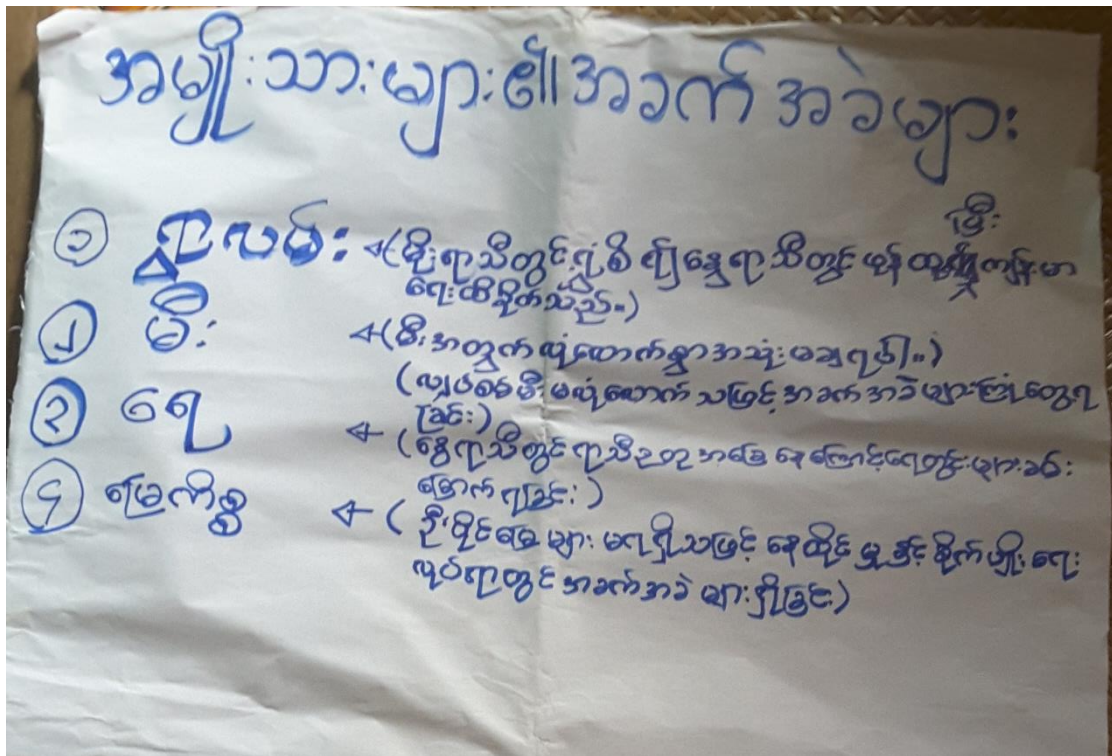 အမျိုးသားများ၏အခက်အခဲများ
၁ ရွာလမ်း (မိုးရာသီတွင်ရွှံ့ဗွက် နွေရာသီတွင် ဖုန်ထူပြီး ကျန်းမာ
ရေးထိခိုက်သည်။)
၂ မီး (မီးအတွက်လုံလောက်စွာအသုံးမပြုရပါ။)
(လျှပ်စစ်မီးမလုံလောက်သဖြင့်အခက်အခဲများကြုံတွေ့ရ
ခြင်း)
၃ ရေ (နွေရာသီတွင် ရာသီဥတုအခြေအနေကြောင့်ရေတွင်းများခမ်း
ခြောက်ရခြင်း)
၄ မြေကိစ္စ (ဦးပိုင်မြေများ မရရှိသဖြင့် နေထိုင်မှုနှင့်စိုက်ပျိုးရေး
လုပ်ရာတွင်အခက်အခဲများရှိခြင်း)